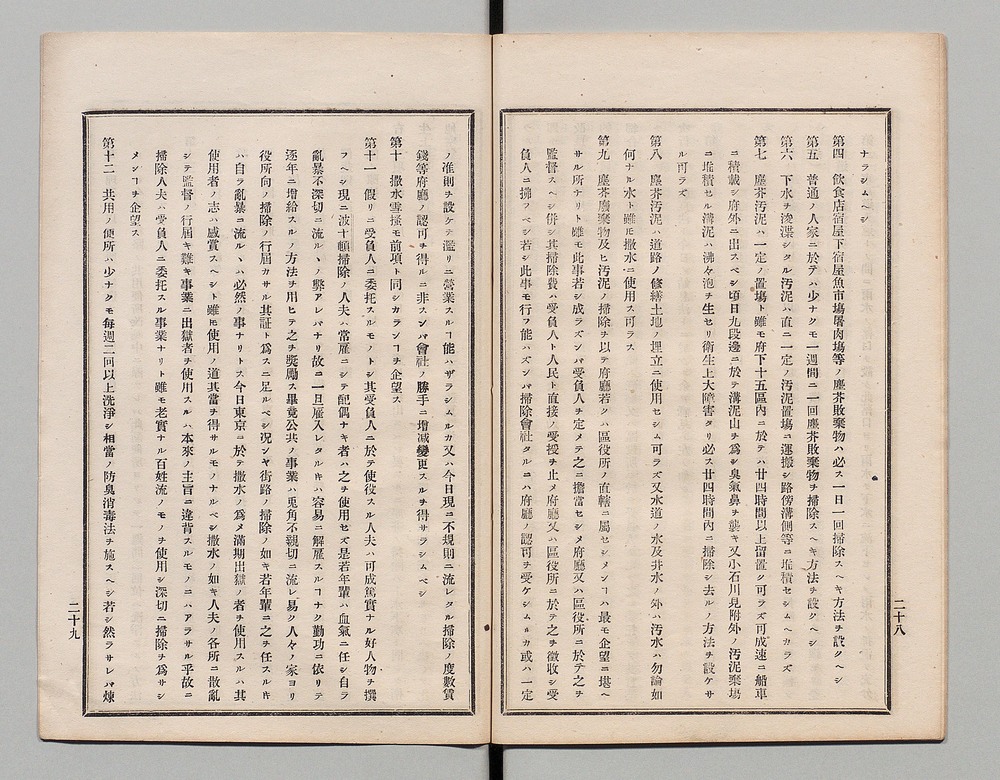 ナラシムヘシ
第四　飮食店宿屋下宿屋魚市塲屠肉塲等ノ塵芥敗棄物ハ必ス一日一回掃除スヘキ方法ヲ設クヘシ
第五　普通ノ人家ニ於テハ少ナクモ一週間ニ一回塵芥敗棄物ヲ掃除スヘキ方法ヲ設クヘシ
第六　下水ヲ浚渫シタル汚泥ハ直ニ一定ノ汚泥置塲ニ運搬シ路傍溝側等ニ堆積セシムヘカラズ
第七　塵芥汚泥ハ一定ノ置塲ト雖モ府下十五區內ニ於テハ廿四時間以上留置ク可ラズ可成速ニ船車
ニ積載シ府外ニ出スベシ頃日九段邊ニ於テ溝泥山ヲ爲シ臭氣鼻ヲ襲キ又小石川見附外ノ汚泥棄塲
ニ堆積セル溝泥ハ沸々泡ヲ生セリ衛生上大障害タリ必ス廿四時間內ニ掃除シ去ルノ方法ヲ設ケサ
ル可ラズ
第八　塵芥汚泥ハ道路ノ修繕土地ノ埋立ニ使用セシム可ラズ又水道ノ水及井水ノ外ハ汚水ハ勿論如
何ナル水ト雖モ撒水ニ使用ス可ラス
第九　塵芥廣棄物及ヒ汚泥ノ掃除ヲ以テ府廳若クハ區役所ノ直轄ニ屬セシメンヿハ最モ企望ニ堪ヘ
サル所ナリト雖モ此事若シ成ラズンバ受負人ヲ定メテ之ニ擔當セシメ府廳又ハ區役所ニ於テ之ヲ
監督スヘシ併シ其掃除費ハ受負人ト人民ト直接ノ受授ヲ止メ府廳又ハ區役所ニ於テ之ヲ徵收シ受
負人ニ拂フベシ若シ此事モ行フ能ハズンバ掃除會社タルニハ府廳ノ認可ヲ受ケシムルカ或ハ一定
二十八
ノ准則ヲ設ケテ濫リニ營業スルヿ能ハザラシムルカ又ハ今日現ニ不規則ニ流レタル掃除ノ度數賃
錢等府廳ノ認可ヲ得ルニ非スンバ會社ノ勝手ニ增减變更スルヲ得サラシムベシ
第十　撒水雪掻モ前項ト同シカランヿヲ企望ス
第十一　假リニ受負人ニ委托スルモノトシ其受負人ニ於テ使役スル人夫ハ可成篤實ナル好人物ヲ撰
フヘシ現ニ波士頓掃除ノ人夫ハ常雇ニシテ配偶ナキ者ハ之ヲ使用セズ是若年輩ハ血氣ニ任シ自ラ
亂暴不深切ニ流ルヽノ弊アレバナリ故ニ一旦雇入レタルキハ容易ニ解雇スルヿナク勤功ニ依リテ
逐年ニ增給スルノ方法ヲ用ヒテ之ヲ奬勵ス畢竟公共ノ事業ハ兎角不親切ニ流レ易ク人々ノ家ヨリ
役所向ノ掃除ノ行届カサル其証ト爲スニ足ルベシ况ンヤ街路ノ掃除ノ如キ若年輩ニ之ヲ任スルキ
ハ自ラ亂暴ニ流ルヽハ必然ノ事ナリトス今日東京ニ於テ撒水ノ爲メ滿期出獄ノ者ヲ使用スルハ其
使用者ノ志ハ感賞スヘシト雖モ使用ノ道其當ヲ得サルモノナルベシ撒水ノ如キ人夫ノ各所ニ散亂
シテ監督ノ行届キ難キ事業ニ出獄者ヲ使用スルハ本來ノ主旨ニ違背スルモノニハアラサル乎故ニ
掃除人夫ハ受負人ニ委托スル事業ナリト雖モ老實ナル百姓流ノモノヲ使用シ深切ニ掃除ヲ爲サシ
メンヿヲ企望ス
第十二　共用ノ便所ハ少ナクモ每週二回以上洗淨シ相當ノ防臭消毒法ヲ施スヘシ若シ然ラサレバ煉
二十九